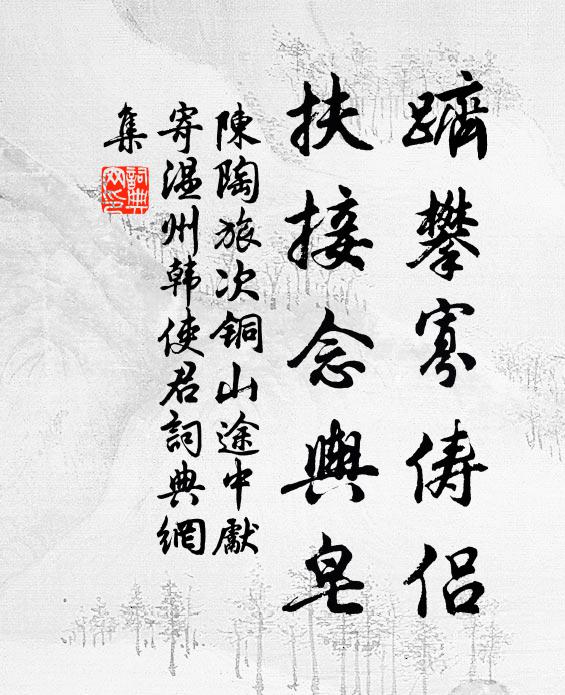 躋攀寡儔侶
扶接念輿皂
陳陶旅次铜山途中獻
寄溫州韩使君詞典網
集
詞典网